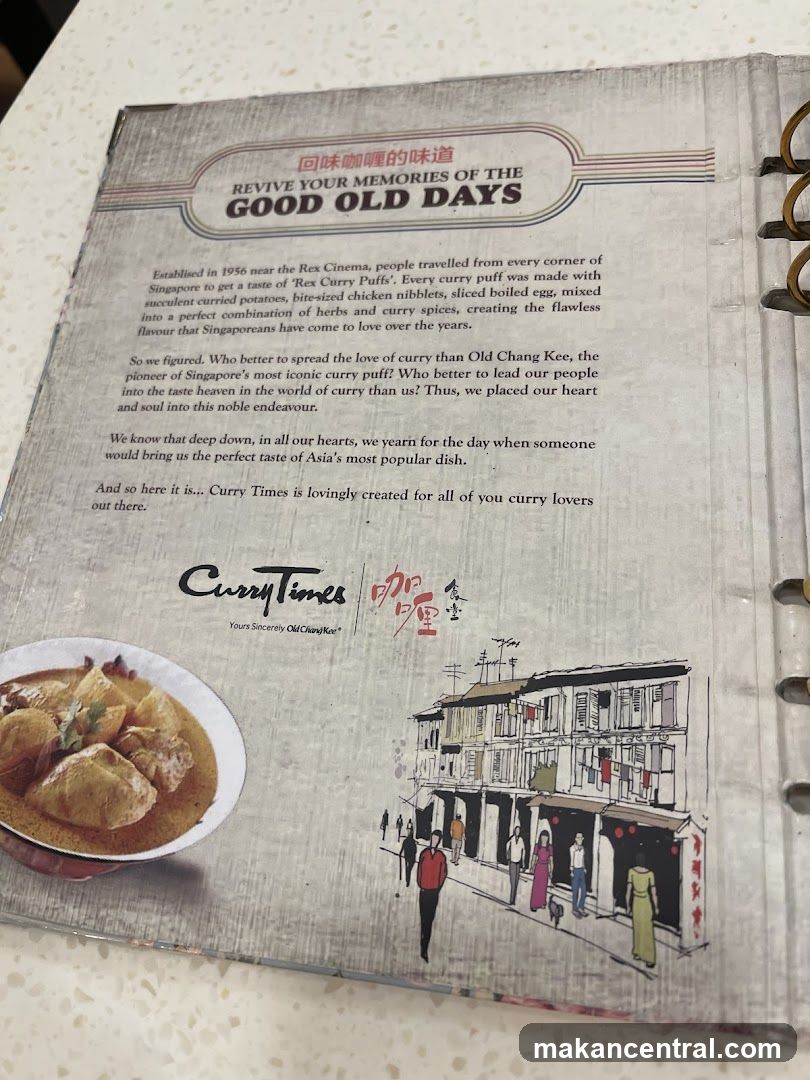 回味咖喱的味道
REVIVE YOUR MEMORIES OF THE
GOOD OLD DAYS
Establised in 1956 near the Rex Cinema, people travelled from every corner of
Singapore to get a taste of 'Rex Curry Puffs'. Every curry puff was made with
succulent curried potatoes, bite-sized chicken nibblets, sliced boiled egg, mixed
into a perfect combination of herbs and curry spices, creating the flawless
flavour that Singaporeans have come to love over the years.
So we figured. Who better to spread the love of curry than Old Chang Kee, the
pioneer of Singapore's most iconic curry puff? Who better to lead our people
into the taste heaven in the world of curry than us? Thus, we placed our heart
and soul into this noble endeavour.
We know that deep down, in all our hearts, we yearn for the day when someone
would bring us the perfect taste of Asia's most popular dish.
And so here it is... Curry Times is lovingly created for all of you curry lovers
out there.
Curry Times 咖喱食堂
Yours Sincerely Old Chang Kee®
makancentral.com